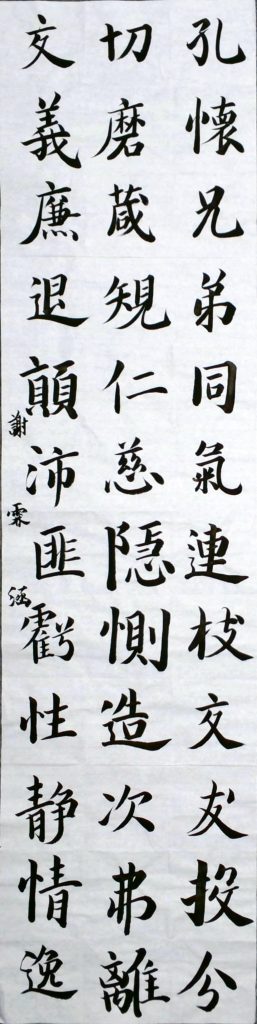 孔懷兄弟同氣連枝交友投分
切磨葴規仁慈隱惻造次弗離
交義廉退顛沛匪虧性静情逸
謝涵